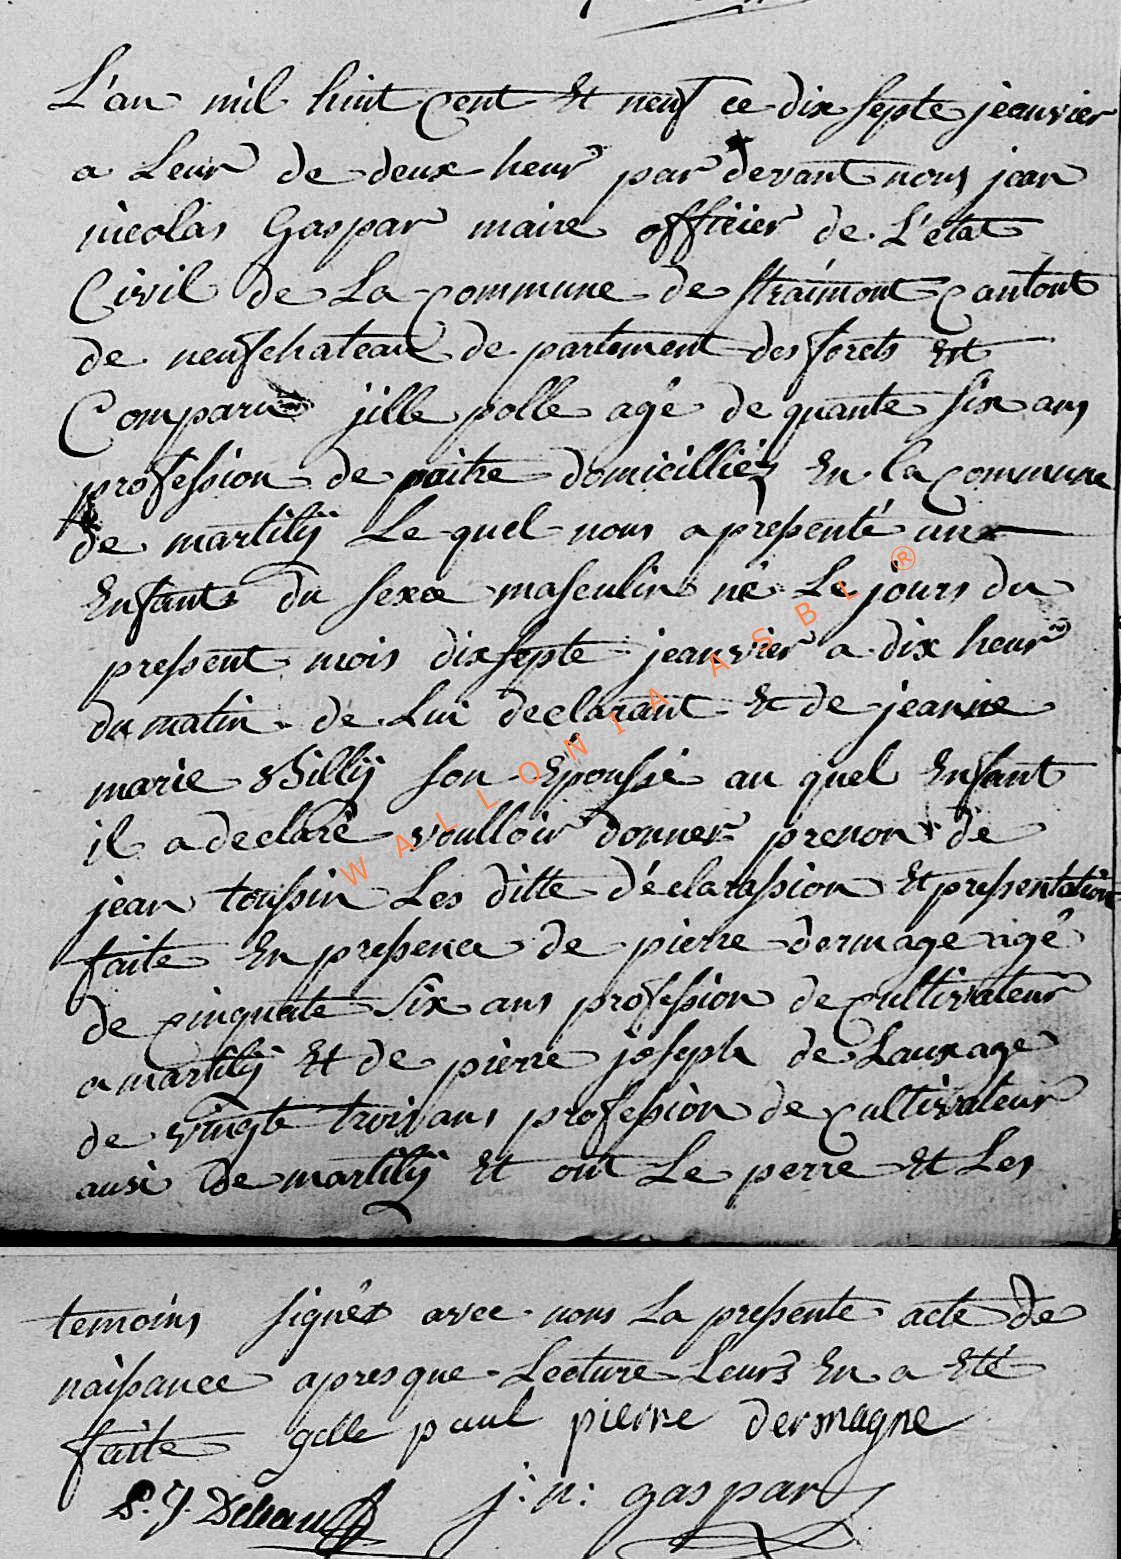 L'an mil huit cent Et neuf ce dix septe jeanvier
a Leur de deux heur par devant nous jean
nicolas Gaspar maire officier de L'état
Civil de La commune de straimont cantont
de neufchateau de partement des forets Est
Comparu jille polle agé de quante six ans
profession de paitre domicilliéz En la commune
de martilij Le quel nous a pressenté un
Enfants du sexe masculin né Le jours du
pressent mois dix septe jeanvier a dix heur
du matin de Lui declarant Et de jeanne
marie Billij son Epoussé au quel Enfant
il a declaré voulloir donner prenon de
jean toussin Les ditte déclarassion Et pressentation
faite En pressence de pierre dermage agé
de cinquate six ans profession de cultivateur
a martilij Et de pierre joseph de Laux age
de vingte trois ans profession de cultivateur
ausi de martilij Et ont Le perre Et Les
temoins signéz avec nous La pressente acte de
naissance apres que Lecture Leurs En a Eté
faite gille paul pierre dermagne
P. J. Delaux j: n: gaspar
WALLONIA ASBL ®